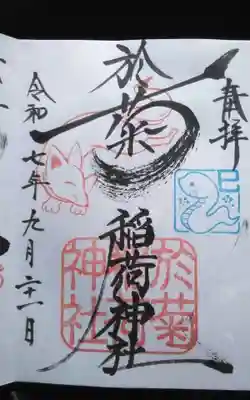 奉拝
於菊
稲荷神社
於菊
神社
令和七年九月二十一日
巳